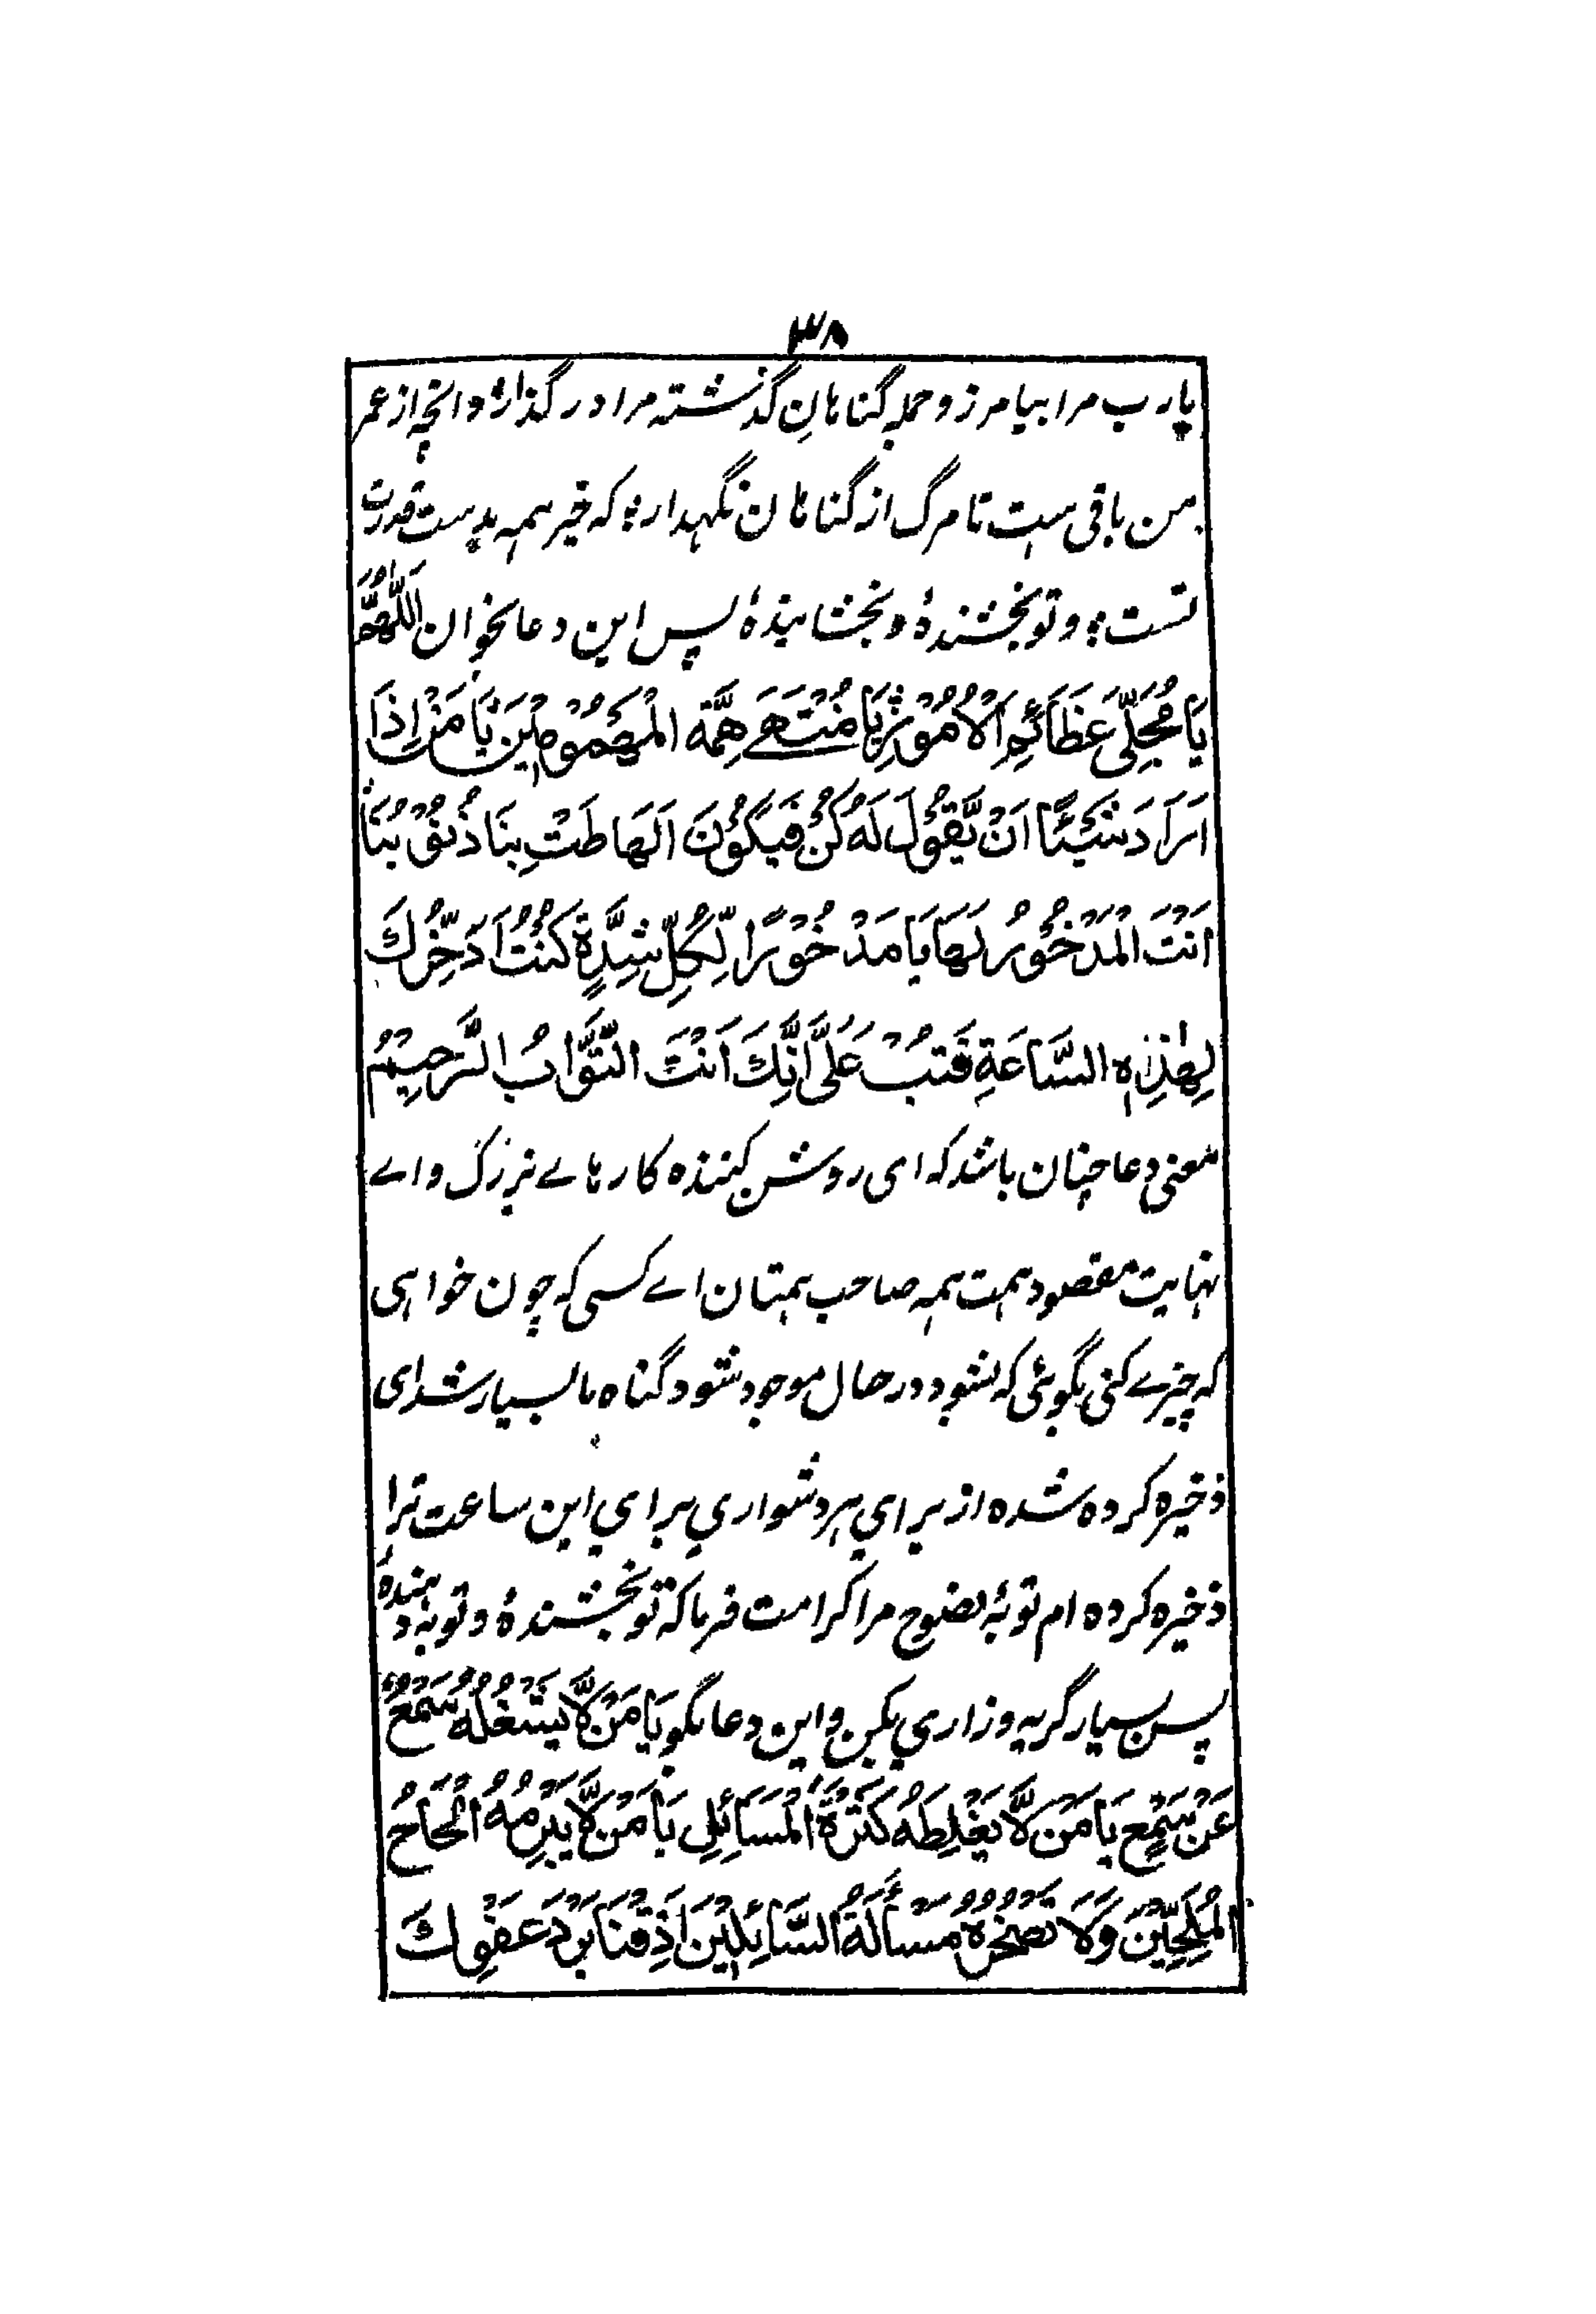 ۳۸
یارب مرا بیامرز و جمله گناهانِ گذشته مرا درگذار و انچه از عمر
من باقی ست تا مرگ از گناهان نگهدار؛ که خیر همه بدست قدرت
تست؛ و تو بخشندهٔ و بخشایندهٔ پس این دعا بخوان اَللّٰهُمَّ
يَا مُجَلِّیَ عَظَائِمِ الْاُمُوْرِ يَا مُنْتَهٰے هِمَّةِ الْمَهْمُوْمِيْنَ يَا مَنْ اِذَا
اَرَادَ شَيْئًا اَنْ يَّقُوْلَ لَهُ كُنْ فَيَكُوْنَ اَحَاطَتْ بِنَا ذُنُوْبُنَا
اَنْتَ الْمَدْخُوْرُ لَهَا يَا مَدْخُوْرًا لِّكُلِّ شِدَّةٍ كُنْتُ اَدَّخِرُكَ
لِهٰذِهِ السَّاعَةِ فَتُبْ عَلَیَّ اِنَّكَ اَنْتَ التَّوَّابُ الرَّحِيْمُ
معنی دعا چنان باشد که ای روشن کننده کارهاے بزرگ واے
نهایت مقصود همت همه صاحب همتان اے کسی که چون خواهی
که چیزے کنی بگوئی که بشود در حال موجود شود گناه ما بسیار شد ای
ذخیره کرده شده از برای هر دشواری برای این ساعت ترا
ذخیره کرده ام توبهٔ نصوح مرا کرامت فرما که تو بخشندهٔ و توبه دهندهٔ
پس بسیار گریه و زاری بکن و این دعا بگو يَا مَنْ لَّا يَشْغَلُهُ سَمْعٌ
عَنْ سَمْعٍ يَا مَنْ لَّا يَغْلِطَهُ كَثْرَةُ الْمَسَائِلِ يَا مَنْ لَّا يُبْرِمُهُ اِلْحَاحُ
الْمُلِحِّيْنَ وَلَا تَضْجُرُهُ مَسْأَلَةُ السَّائِلِيْنَ اَذِقْنَا بَرْدَ عَفْوِكَ